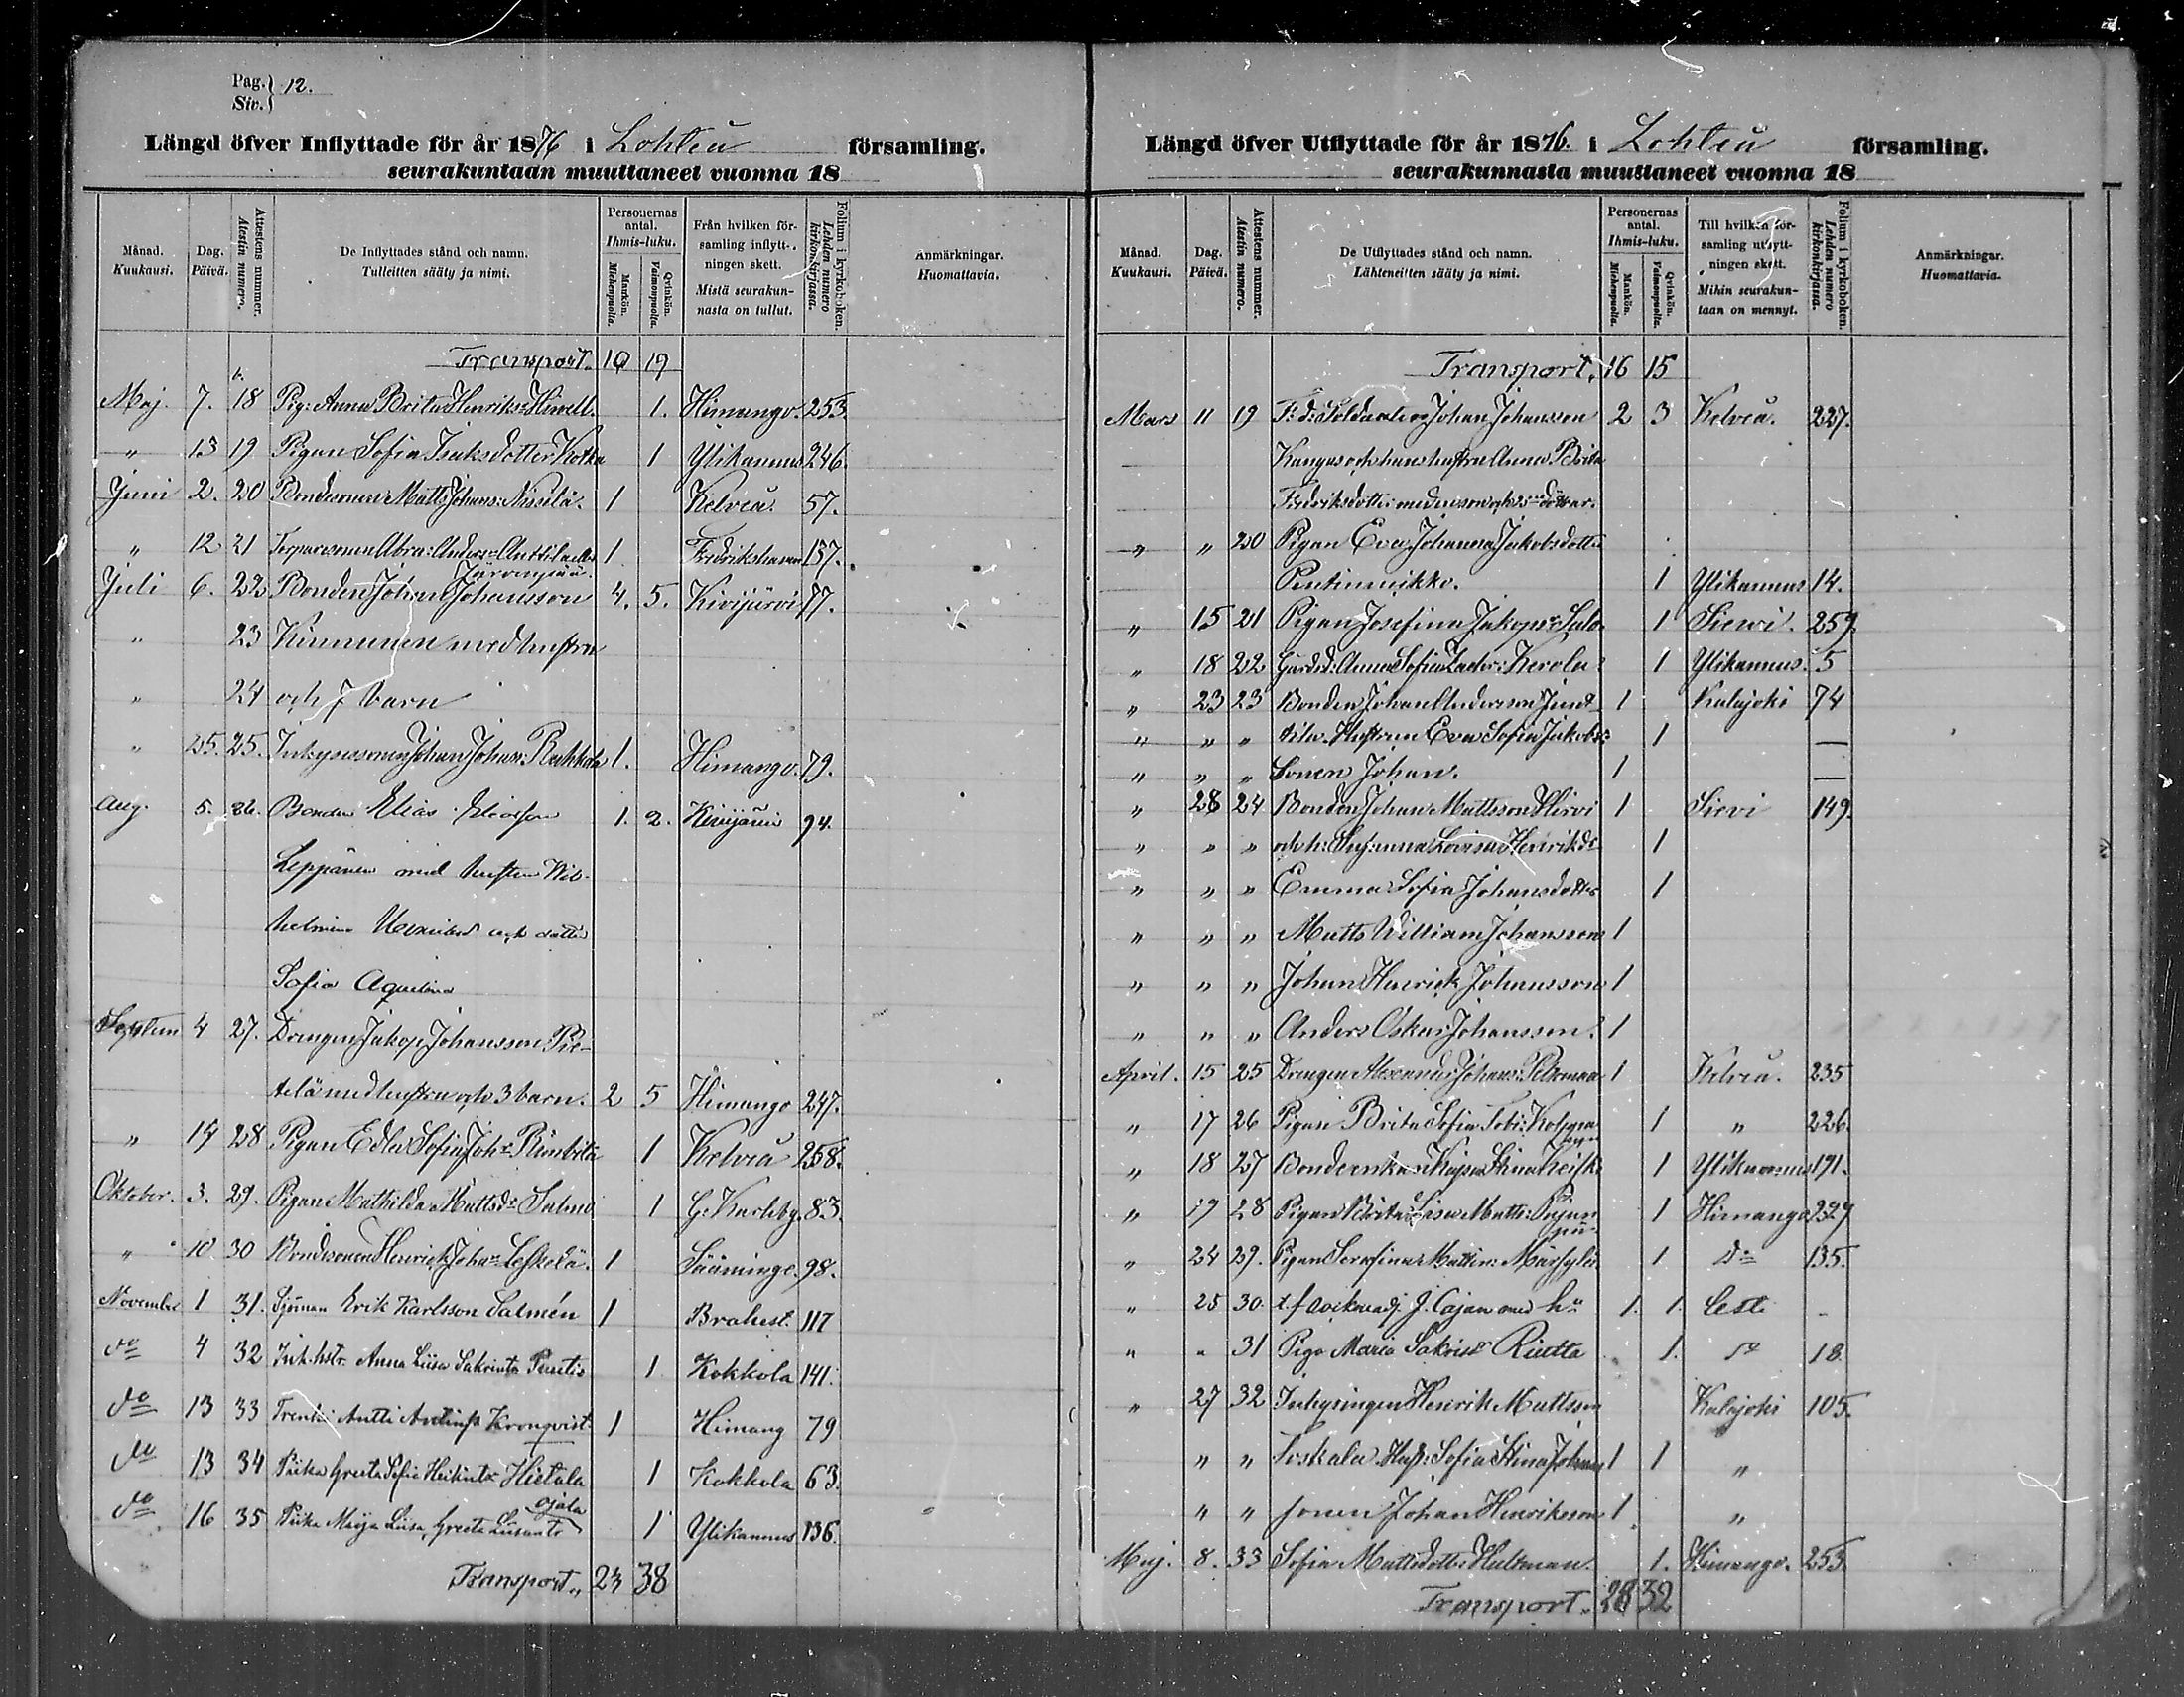 Pag. 12.
Siv.
Längd öfver Inflyttade för år 1876 i Lohteå församling.
seurakuntaan muuttaneet vuonna 18
Månad. Kuukausi. Dag. Päivä. Attestens nummer. Atestin numero. De Inflyttades stånd och namn. Tulleitten sääty ja nimi. Personernas antal. Ihmis-luku. Mankön. Miehenpuolta. Qvinkön. Vaimonpuolta. Från hvilken församling inflyttningen skett. Mistä seurakunnasta on tullut. Folium i kyrkoboken. Lehden numero kirkonkirjassa. Anmärkningar. Huomattavia.
Transport. 10 19
Maj. 7. 18 Pig. Anna Brita Henriks: 1. Himango. 253.
" 13 19 Pigan Sofia Isaksdotter Kotka 1 Ylikannus 246.
Juni 2. 20 Bondesonen Matts Johans: Nissilä. 1 Kelviå. 57.
" 12 21 Abra: Anders: 1 Fredrikshamn 137.
Järvenpää.
Juli 6. 22 Bonden Johan Johansson 4. 5. Kivijärvi 77.
" 23 Kinnunen med hustru
" 24 och 7 barn
" 25. 25. Inhysesonen Johan Johans: 1. Himango. 79.
Aug. 5. 26. Bonden Elias Eliasson 1. 2. Kivijärvi 94.
Leppänen med hustru Wil-
helmina och dotter
Sofia Aquilina
Septem 4 27. Drengen Jakop Johansson Pie-
tilä med hustru och 3 barn. 2 5 Himango 247.
" 14 28 Pigan Edla Sofia Joh: 1 Kelviå 258.
Oktober. 3. 29. Pigan Mathilda Mattsdr Salmo 1 G. Karleby. 83.
" 10 30 Bondesonen Henrick Johns: Leskelä. 1 Sääminge. 98.
November 1 31. Sjöman Erik Karlsson Salmén 1 Brahest. 117
do 4 32 Inh.hstr. Anna Liisa 1 Kokkola 141.
do 13 33 Trenki Antti Antinp. Kronqvist 1 Himang 79
do 13 34 Piika Greeta Sofia Heikintr Hietala 1 Kokkola 63.
ojala
do 16 35 Piika Maija Liisa, Greeta 1 Ylikannus 136.
Transport,, 23 38
Längd öfver Utflyttade för år 1876. i Lohteå församling.
seurakunnasta muuttaneet vuonna 18
Månad. Kuukausi. Dag. Päivä. Attestens nummer. Atestin numero. De Utflyttades stånd och namn. Lähteneitten sääty ja nimi. Personernas antal. Ihmis-luku. Mankön. Miehenpuolta. Qvinkön. Vaimonpuolta. Till hvilken församling utflyttningen skett. Mihin seurakuntaan on mennyt. Folium i kyrkoboken. Lehden numero kirkonkirjassa. Anmärkningar. Huomattavia.
Transport. 16 15
Mars 11 19 F:d: Soldaten Johan Johansson 2 3 Kelviå. 227.
Kangas och hans hustru Anna Brita
Fredriksdotter med en son och 2 döttrar.
" " 20 Pigan Eva Johanna Jakobsdotter
Pentinmikko. 1 Ylikannus 14.
" 15 21 Pigan Josefina Jakops: Salo. 1 Siewi. 259.
" 18 22 Gårdsd: Anna Sofia Zachr: Kerola 1 Ylikannus. 5
" 23 23 Bonden Johan Andersson Junt- 1 Kalajoki 74
" " " tila. Hustrun Eva Sofia Jakobs: 1 —
" " " Sonen Johan. 1 —
" 28 24 Bonden Johan Mattsson Hirvi 1 Sievi 149.
" " " och h: Lovisa Henriksdr 1
" " " Emma Sofia Johansdotter 1
" " " Matts William Johansson 1
" " " Johan Henrick Johansson 1
" " " Anders Oskar Johansson. 1
April. 15 25 Drengen Alexander Johans: Peltomaa 1 Kelviå. 235
" 17 26 Pigan Brita Sofia 1 " 226.
" 18 27 Bondenkan Kajsa Stina 1 Ylikannus 191.
" 19 28 Pigan Brita Lisa Matts: 1 Himango 229
" 24 29. Pigan Serafina Mattsr: Märsylä 1 do 135.
" 25 30. J. Cajan med hu 1. 1. Cesti -
" " 31 Piga Maria Rietta 1. do 18.
" 27 32 Inhysingen Henrik Mattsson Kalajoki 105.
" " Hust: Sofia Stina Johans 1 1 "
" " sonen Johan Henriksson 1. "
Maj. 8. 33 Sofia Mattsdotter Hultman. 1. Himango. 253.
Transport. 28 32